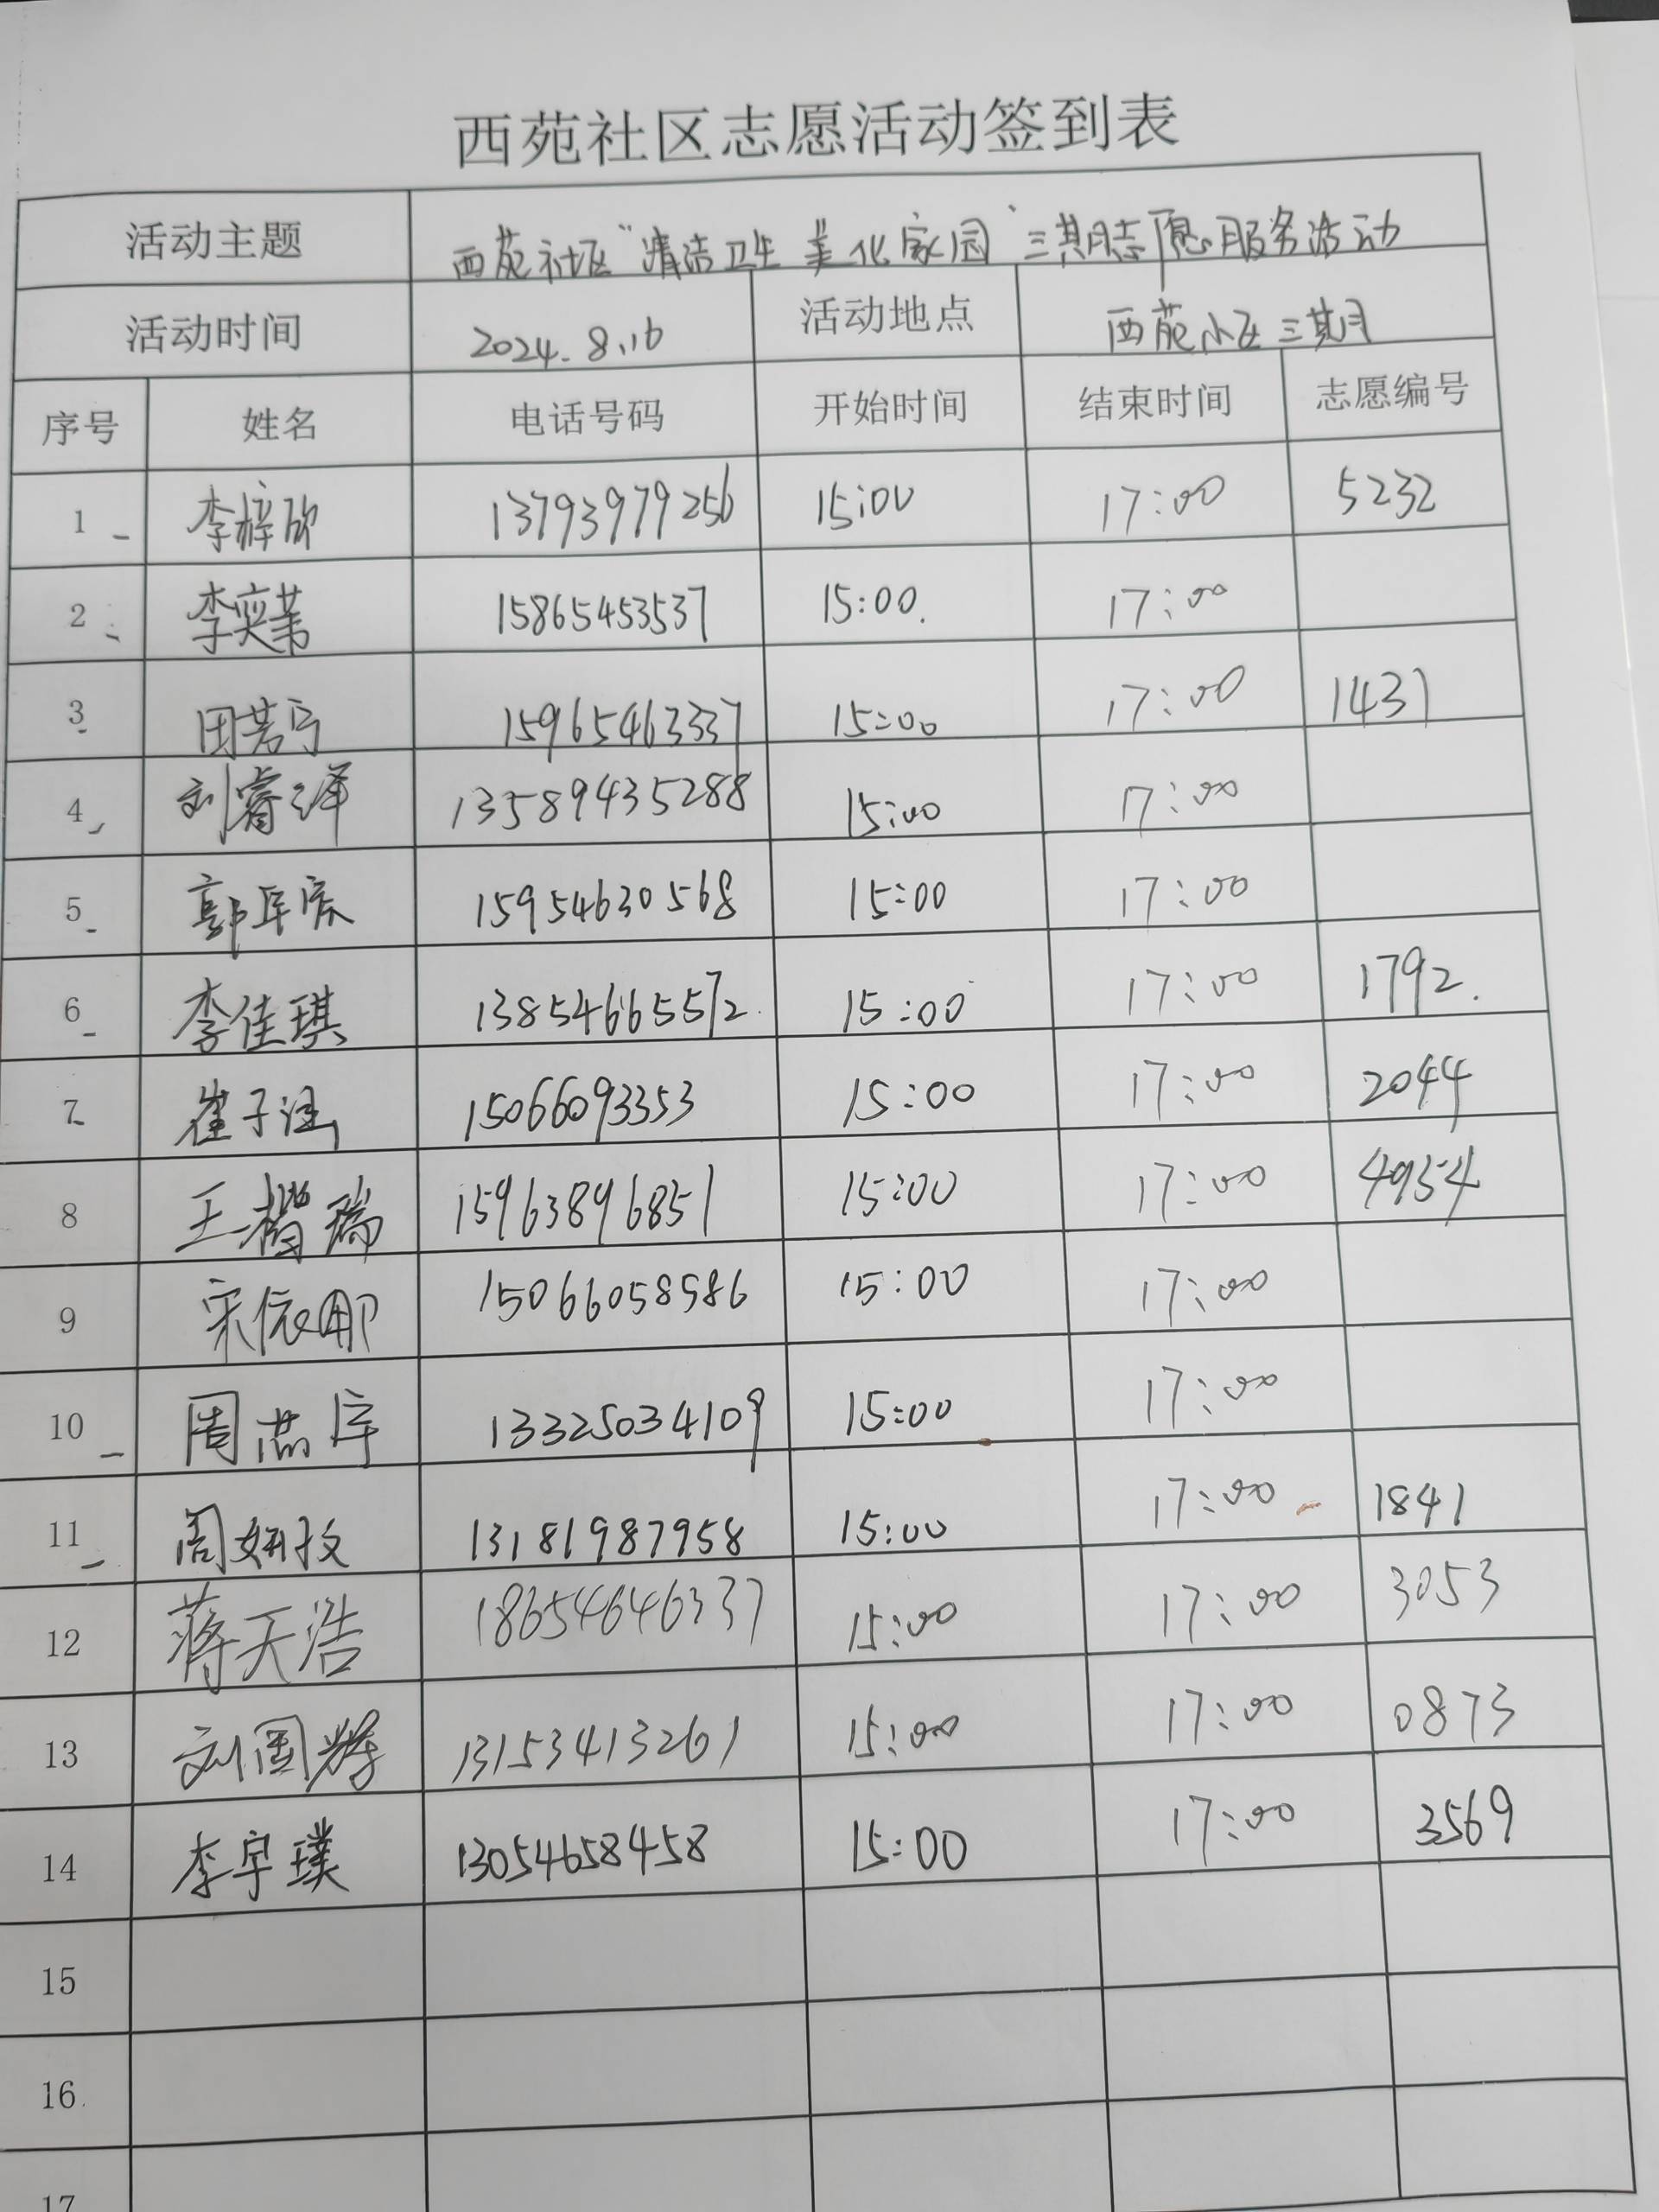 西苑社区志愿活动签到表
活动主题 西苑社区“清洁卫生 美化家园”三期志愿服务活动
活动时间 2024.8.16 活动地点 西苑小区三期
序号 姓名 电话号码 开始时间 结束时间 志愿编号
1 李梓欣 13793979256 15:00 17:00 5232
2 李奕苇 15865453537 15:00. 17:00
3 田若宁 15965463337 15:00 17:00 1431
4 刘睿泽 13589435288 15:00 17:00
5 郭 15954630568 15:00 17:00
6 李佳琪 13854665572. 15:00 17:00 1792.
7 崔子涵 15066093353 15:00 17:00 2044
8 王楷瑞 15963896851 15:00 17:00 4954
9 宋依娜 15066058586 15:00 17:00
10 周芯宇 13325034109 15:00 17:00
11 周妍 13181987958 15:00 17:00 1841
12 蒋天浩 18654646337 15:00 17:00 3053
13 刘国 13153413261 15:00 17:00 0873
14 李宇璞 13054658458 15:00 17:00 3569
15
16
17